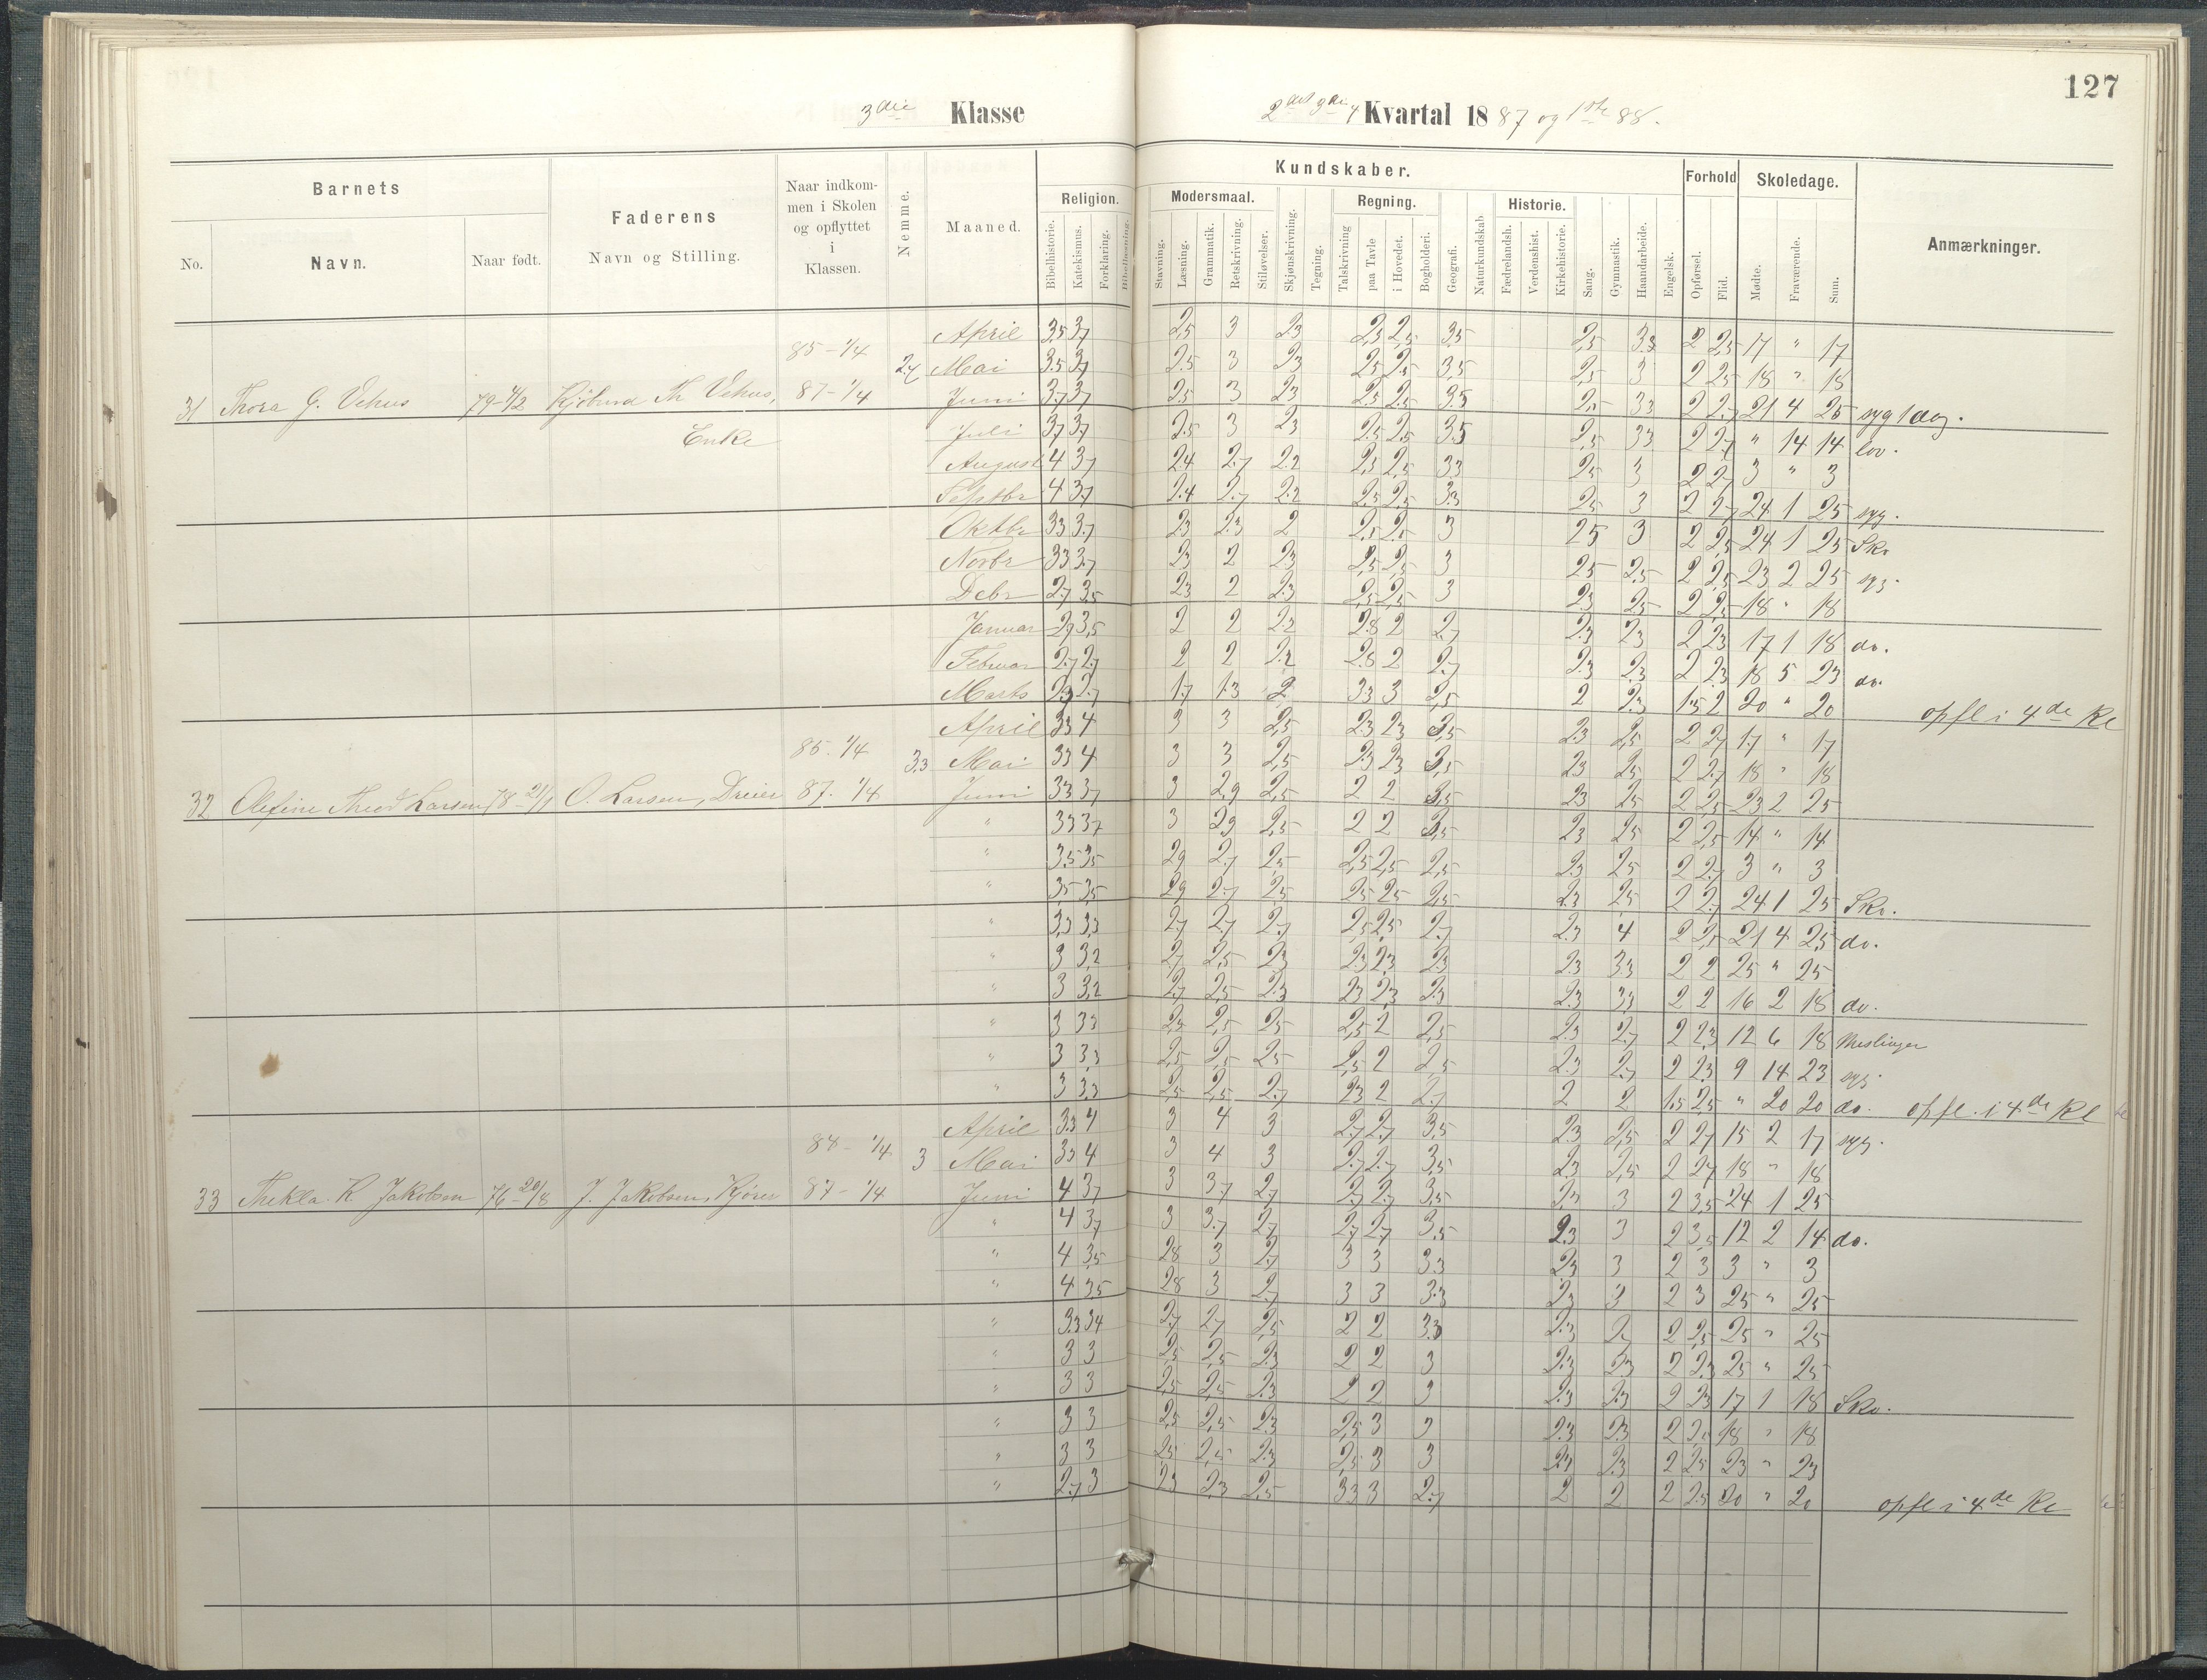 127
3die Klasse
2det 3die 4 Kvartal 1887 og 1ste 88.
Barnets
No.
Navn.
Naar født.
Faderens
Navn og Stilling.
Naar indkom-
men i Skolen
og opflyttet
i
Klassen.
Nemme.
Maaned.
Kundskaber.
Religion.
Bibelhistorie.
Katekismus.
Forklaring.
Bibellæsning.
Modersmaal.
Stavning.
Læsning.
Grammatik.
Retskrivning.
Stiløvelser.
Skjønskrivning.
Tegning.
Regning.
Talskrivning
paa Tavle
i Hovedet.
Bogholderi.
Geografi.
Naturkundskab
Historie.
Fædrelandsh.
Verdenshist.
Kirkehistorie.
Sang.
Gymnastik.
Haandarbeide.
Engelsk.
Forhold
Opførsel.
Flid.
Skoledage.
Mødte.
Fraværende.
Sum.
Anmærkninger.
April 3,5 3,7 2,5 3 2,3 2,5 2,5 3,5 2,5 3,3 2 2,5 17 " 17
85-1/4
Mai 3,5 3,7 2,5 3 2,3 2,5 2,5 3,5 2,5 3 2 2,5 18 " 18
31 Thora G. Vehus Kjøbmd Th. Vehus, 87-1/4 Juni 3,7 3,7 2,5 3 2,3 2,5 2,5 3,5 2,5 3,3 2 2,7 21 4 25 syg 1 dag.
Enke Juli 3,7 3,7 2,5 3 2,3 2,5 2,5 3,5 2,5 3,3 2 2,7 " 14 14 lov.
August 4 3,7 2,4 2,7 2,2 2,3 2,5 3,3 2,5 3 2 2,7 3 " 3
Septbr 4 3,7 2,4 2,7 2,2 2,5 2,5 3,3 2,5 3 2 2,7 24 1 25 syg.
Oktbr 3,3 3,7 2,3 2,3 2 2,5 2,5 3 2,5 3 2 2,5 24 1 25 Sko
Novbr 3,3 3,7 2,3 2 2,3 2,5 2,5 3 2,5 2,5 2 2,5 23 2 25 syg.
Debr 2,7 3,5 2,3 2 2,3 2,5 2,5 3 2,3 2,5 2 2,5 18 " 18
Januar 2,9 3,5 2 2 2,2 2,8 2 2,7 2,3 2,3 2 2,3 17 1 18 do.
Februar 2,7 2,7 2 2 2,2 2,8 2 2,7 2,3 2,3 2 2,3 18 5 23 do.
Marts 2,3 2,7 1,7 1,3 2 3,3 3 2,5 2 2,3 1,5 2 20 " 20 opfl i 4de Kl
April 3,3 4 3 3 2,5 2,3 2,3 3,5 2,3 2,5 2 2,7 17 " 17
85-1/4 3,3 Mai 3,3 4 3 3 2,5 2,3 2,3 3,5 2,3 2,5 2 2,7 18 " 18
32 Olefine Theod Larsen O. Larsen, Dreier 87-1/4 Juni 3,3 3,7 3 2,9 2,5 2 2 3,5 2,3 2,5 2 2,5 23 2 25
" 3,3 3,7 3 2,9 2,5 2 2 3,5 2,3 2,5 2 2,5 14 " 14
" 3,5 3,5 2,9 2,7 2,5 2,5 2,5 2,5 2,3 2,5 2 2,7 3 " 3
" 3,5 3,5 2,9 2,7 2,5 2,5 2,5 2,5 2,3 2,5 2 2,7 24 1 25 Sko.
" 3,3 3,3 2,7 2,7 2,7 2,5 2,5 2,7 2,3 4 2 2,5 21 4 25 do.
" 3 3,2 2,7 2,5 2,3 2,3 2,3 2,3 2,3 3,3 2 2 25 " 25
" 3 3,2 2,7 2,5 2,3 2,3 2,3 2,3 2,3 3,3 2 2 16 2 18 do.
" 3 3,3 2,5 2,5 2,5 2,5 2 2,5 2,3 2,7 2 2,3 12 6 18 Meslinger
" 3 3,3 2,5 2,5 2,5 2,5 2 2,5 2,3 2,7 2 2,3 9 14 23 syg.
" 3 3,3 2,5 2,5 2,7 2,3 2 2,7 2 2 1,5 2,5 " 20 20 do. opfl. i 4de Kl
April 3,3 4 3 4 3 2,7 2,7 3,5 2,3 2,5 2 2,7 15 2 17 syg.
3 Mai 3,3 4 3 4 3 2,7 2,7 3,5 2,3 2,5 2 2,7 18 " 18
33 Thekla K Jakobsen 76-20/8 J. Jakobsen, Kjører 87-1/4 Juni 4 3,7 3 3,7 2,7 2,7 2,7 3,5 2,3 3 2 3,5 24 1 25
" 4 3,7 3 3,7 2,7 2,7 2,7 3,5 2,3 3 2 3,5 12 2 14 do.
" 4 3,5 2,8 3 2,7 3 3 3,3 2,3 3 2 3 3 " 3
" 4 3,5 2,8 3 2,7 3 3 3,3 2,3 3 2 3 25 " 25
" 3,3 3,4 2,7 2,7 2,5 2 2 3,3 2,3 2 2,5 25 " 25
" 3 3 2,5 2,5 2,3 2 2 3 2,3 2,3 2 2,3 25 " 25
" 3 3 2,5 2,5 2,3 2 2 3 2,3 2,3 2 2,3 17 1 18 Sko.
" 3 3 2,5 2,5 2,3 2,5 3 3 2,3 2,3 2 18 " 18
" 3 3 2,5 2,5 2,3 2,5 3 3 2,3 2,3 2 2,5 23 " 23
" 2,7 3 2,3 2,3 2,5 3,3 3 2,7 2 2 2 2,5 20 " 20 opfl i 4de Kl